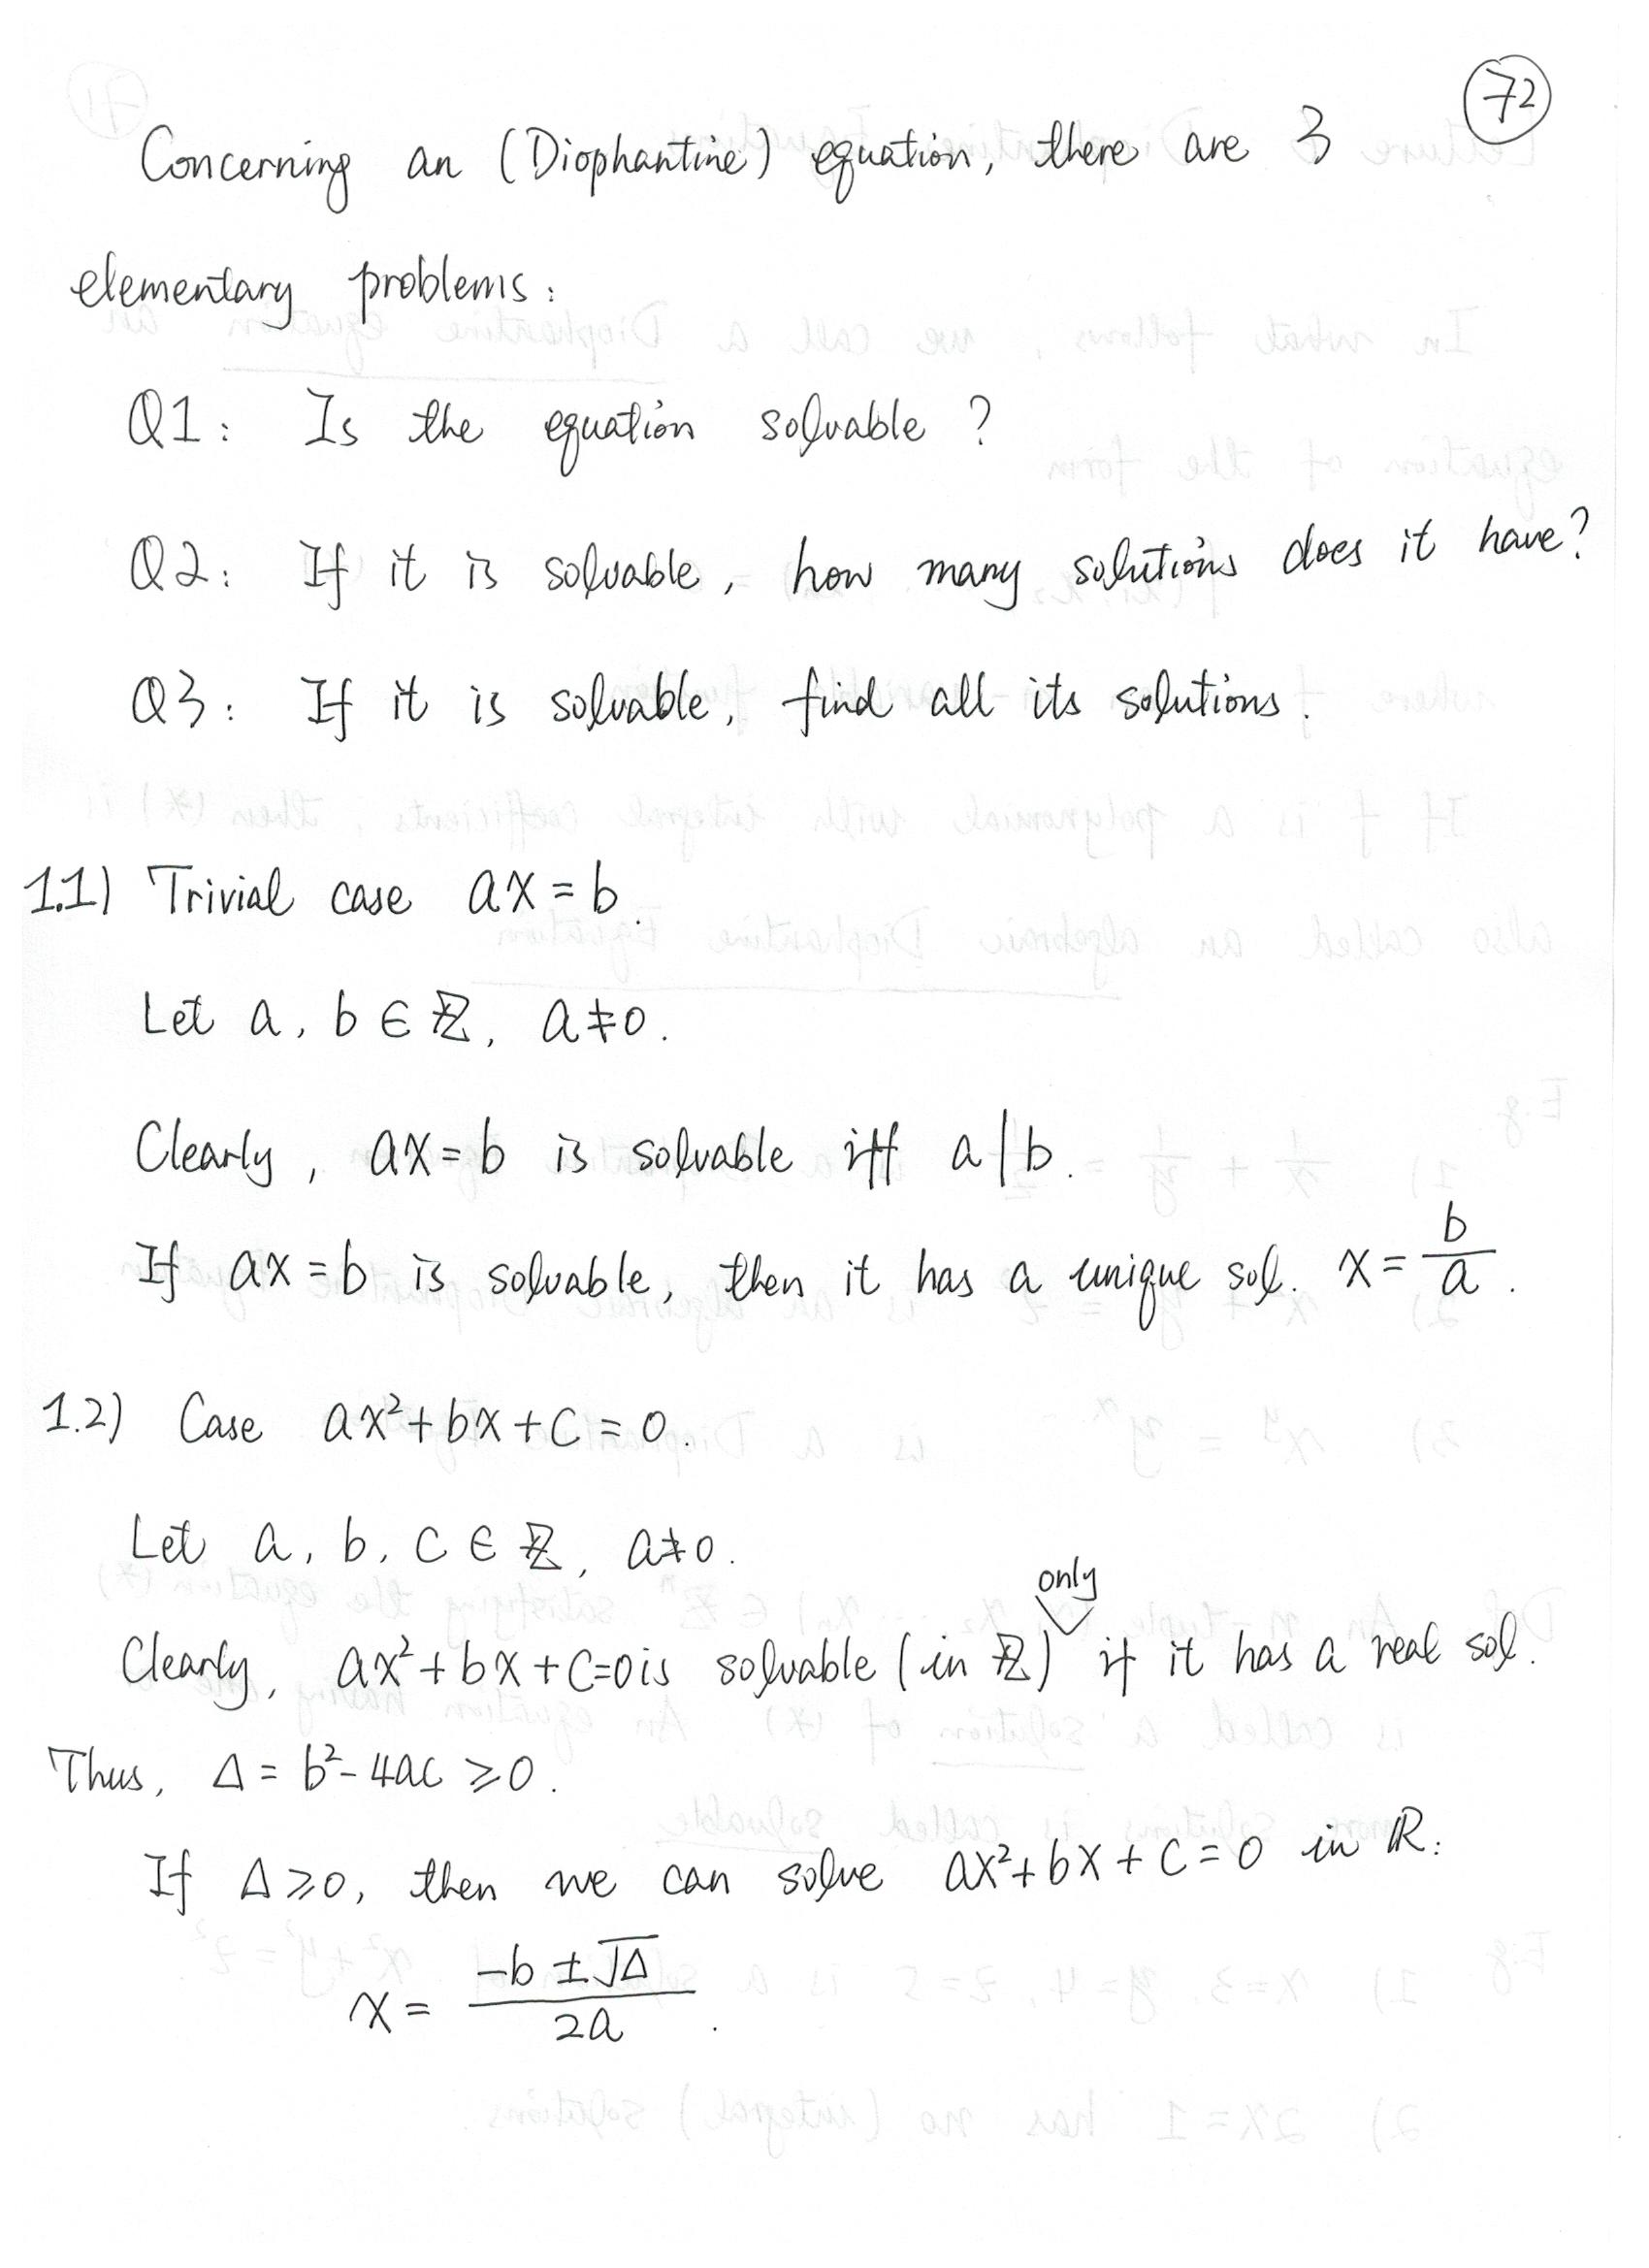 72
Concerning an (Diophantine) equation, there are 3
elementary problems:
Q1: Is the equation solvable?
Q2: If it is solvable, how many solutions does it have?
Q3: If it is solvable, find all its solutions.
1.1) Trivial case ax = b.
Let a, b ∈ ℤ, a ≠ 0.
Clearly, ax = b is solvable iff a | b.
If ax = b is solvable, then it has a unique sol. x = b/a.
1.2) Case ax² + bx + c = 0.
Let a, b, c ∈ ℤ, a ≠ 0.
Clearly, ax² + bx + c = 0 is solvable (in ℤ) only if it has a real sol.
Thus, Δ = b² - 4ac ⩾ 0.
If Δ ⩾ 0, then we can solve ax² + bx + c = 0 in ℝ:
x = (-b ± √Δ)/2a.